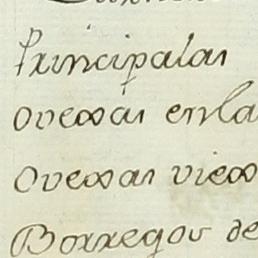 Principalas
ovexas enla
Ovexas viex
Borregos de